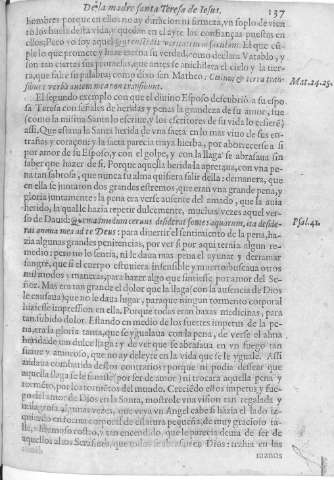 De la madre santa Teresa de Iesus. 137
hombres porque en ellos no ay duracion ni firmeza, vn soplo de vien
to los huela de la vida, y quedan en el ayre las confianças puestas en
ellos; Pero yo soy aquel
ple lo que promete, y
son tan ciertas sus promesas, que antes se
rra, que falte su palabra; como dixo san Matheo: Celum & terra transi-
bunt verba autem mea non transibunt.
Mat. 24. 25.
El segundo exemplo con que el diuino Esposo descubrio a su espo
sa Teresa con señales de heridas y penas la grandeza de su amor, fue
(como la misma Santo lo escriue, y los escritores de su vida lo refieren)
assi. Que estaua la Santa herida de vna saeta en lo mas viuo de sus en-
trañas y coraçon; y la saeta parecia muy a hierba, por aborrecerse a si
por amor de su Esposo, y con el golpe, y con la llaga se abrasaua sin
saber que hazer de si. Porque aquella herida la apretaua, con vna pe-
na tan sabrosa, que nunca el alma quisiera salir della: de manera, que
en ella se juntaron dos grandes estremos, que eran vna grande pena, y
gloria juntamente: la pena era verse ausente del amado, que la auia
herido, la qual le hazia repetir dulcemente, muchas vezes aquel ver-
so de Dauid: Quemadmodum ceruus desiderat fontes aquarum, ita deside-
rat anima mea ad te Deus: para diuertir el sentimiento de la pena, ha-
Psal. 41.
zia algunas grandes penitencias, por ver si por aqui ternia algun re-
medio: pero no lo sentia, ni le daua mas pena el ayunar y derramar
sangre, que si el cuerpo estuuiera insensible y muerto: buscaua otros
mil modos y maneras, para hazer algo que sintiesse por amor del Se-
ñor. Mas era tan grande el dolor que la llaga (con la ausencia de Dios)
le causaua, que no le daua lugar, para que ningun tormento corporal
hiziesse impression en ella. Porque todas eran baxas medicinas, para
tan subido dolor. Estando en medio de los fuertes impetus de la pe-
na, era la gloria tanta, que se ygualaua con la pena, de verse el alma
herida de vn dulce llaga; y de ver que se abrasaua en vn fuego tan
suaue y amoroso, que no ay deleyte en la vida que se le yguale. Assi
andaua combatida destos contrarios: porque ni podia dessear que
aquella llaga se le sanasse (por ser de amor) ni trocara aquella pena y
tormento, por los tesoros del mundo. Creciendo estos impetus y fue-
go del amor de Dios en la Santa, mostrole vna vision tan regalada y
algunas vezes, que veya vn Angel cabe si hazia el lado iz
quierdo en forma corporal de estatura pequeña, de muy gracioso ta-
lle, hermoso rostro, y tan encendido, que le parecia deuia de ser de
aquellos altos Serafines, que todos se abrasan en Dios: trahia en las
manos